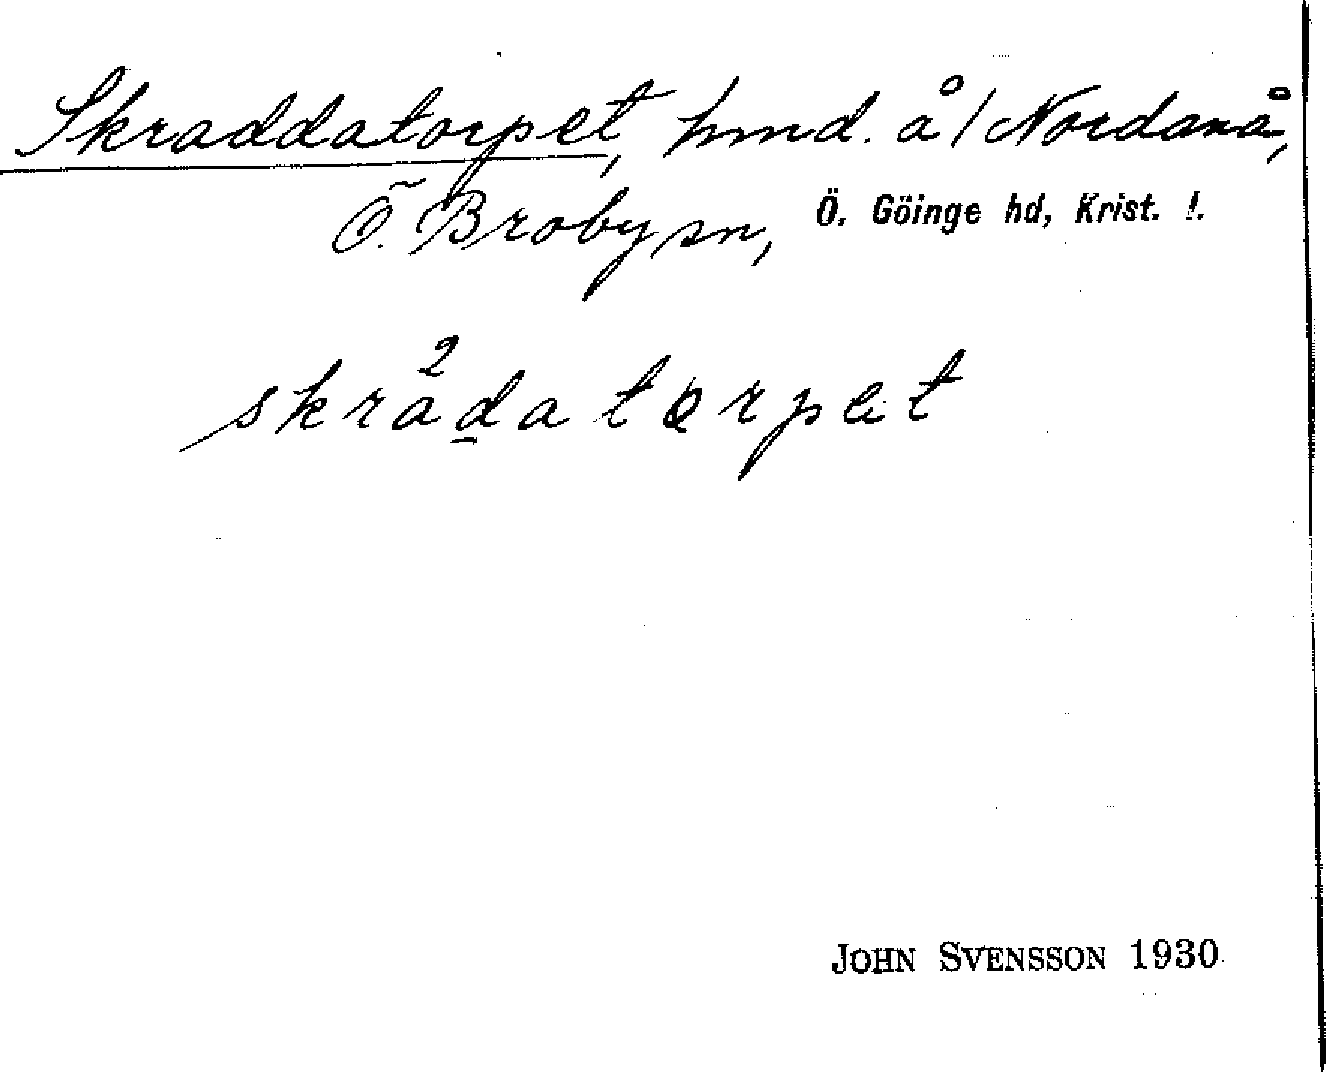 Skraddatorpet, hmd. å / Nordanå,
Ö. Broby sn, Ö. Göinge hd, Krist. l.
skra²da torpet
JOHN SVENSSON 1930